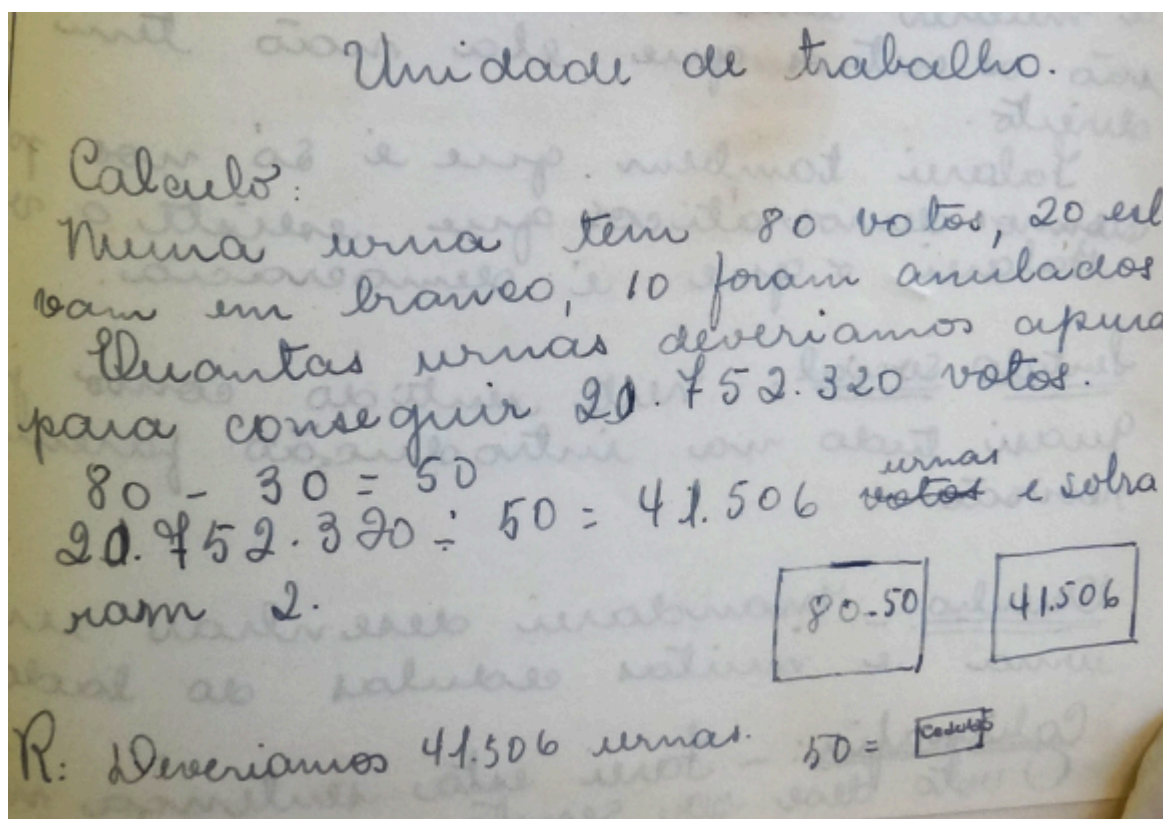 Unidade de trabalho.
Calculo:
Numa urna tem 80 votos, 20 est
vam em branco, 10 foram anulados
Quantas urnas deveriamos apura
para conseguir 20.752.320 votos.
80 - 30 = 50
urnas
20.752.320 ÷ 50 = 41.506 votos e sobra
ram 2.
80-50
41.506
R: Deveriamos 41.506 urnas. 50 = Cedulas